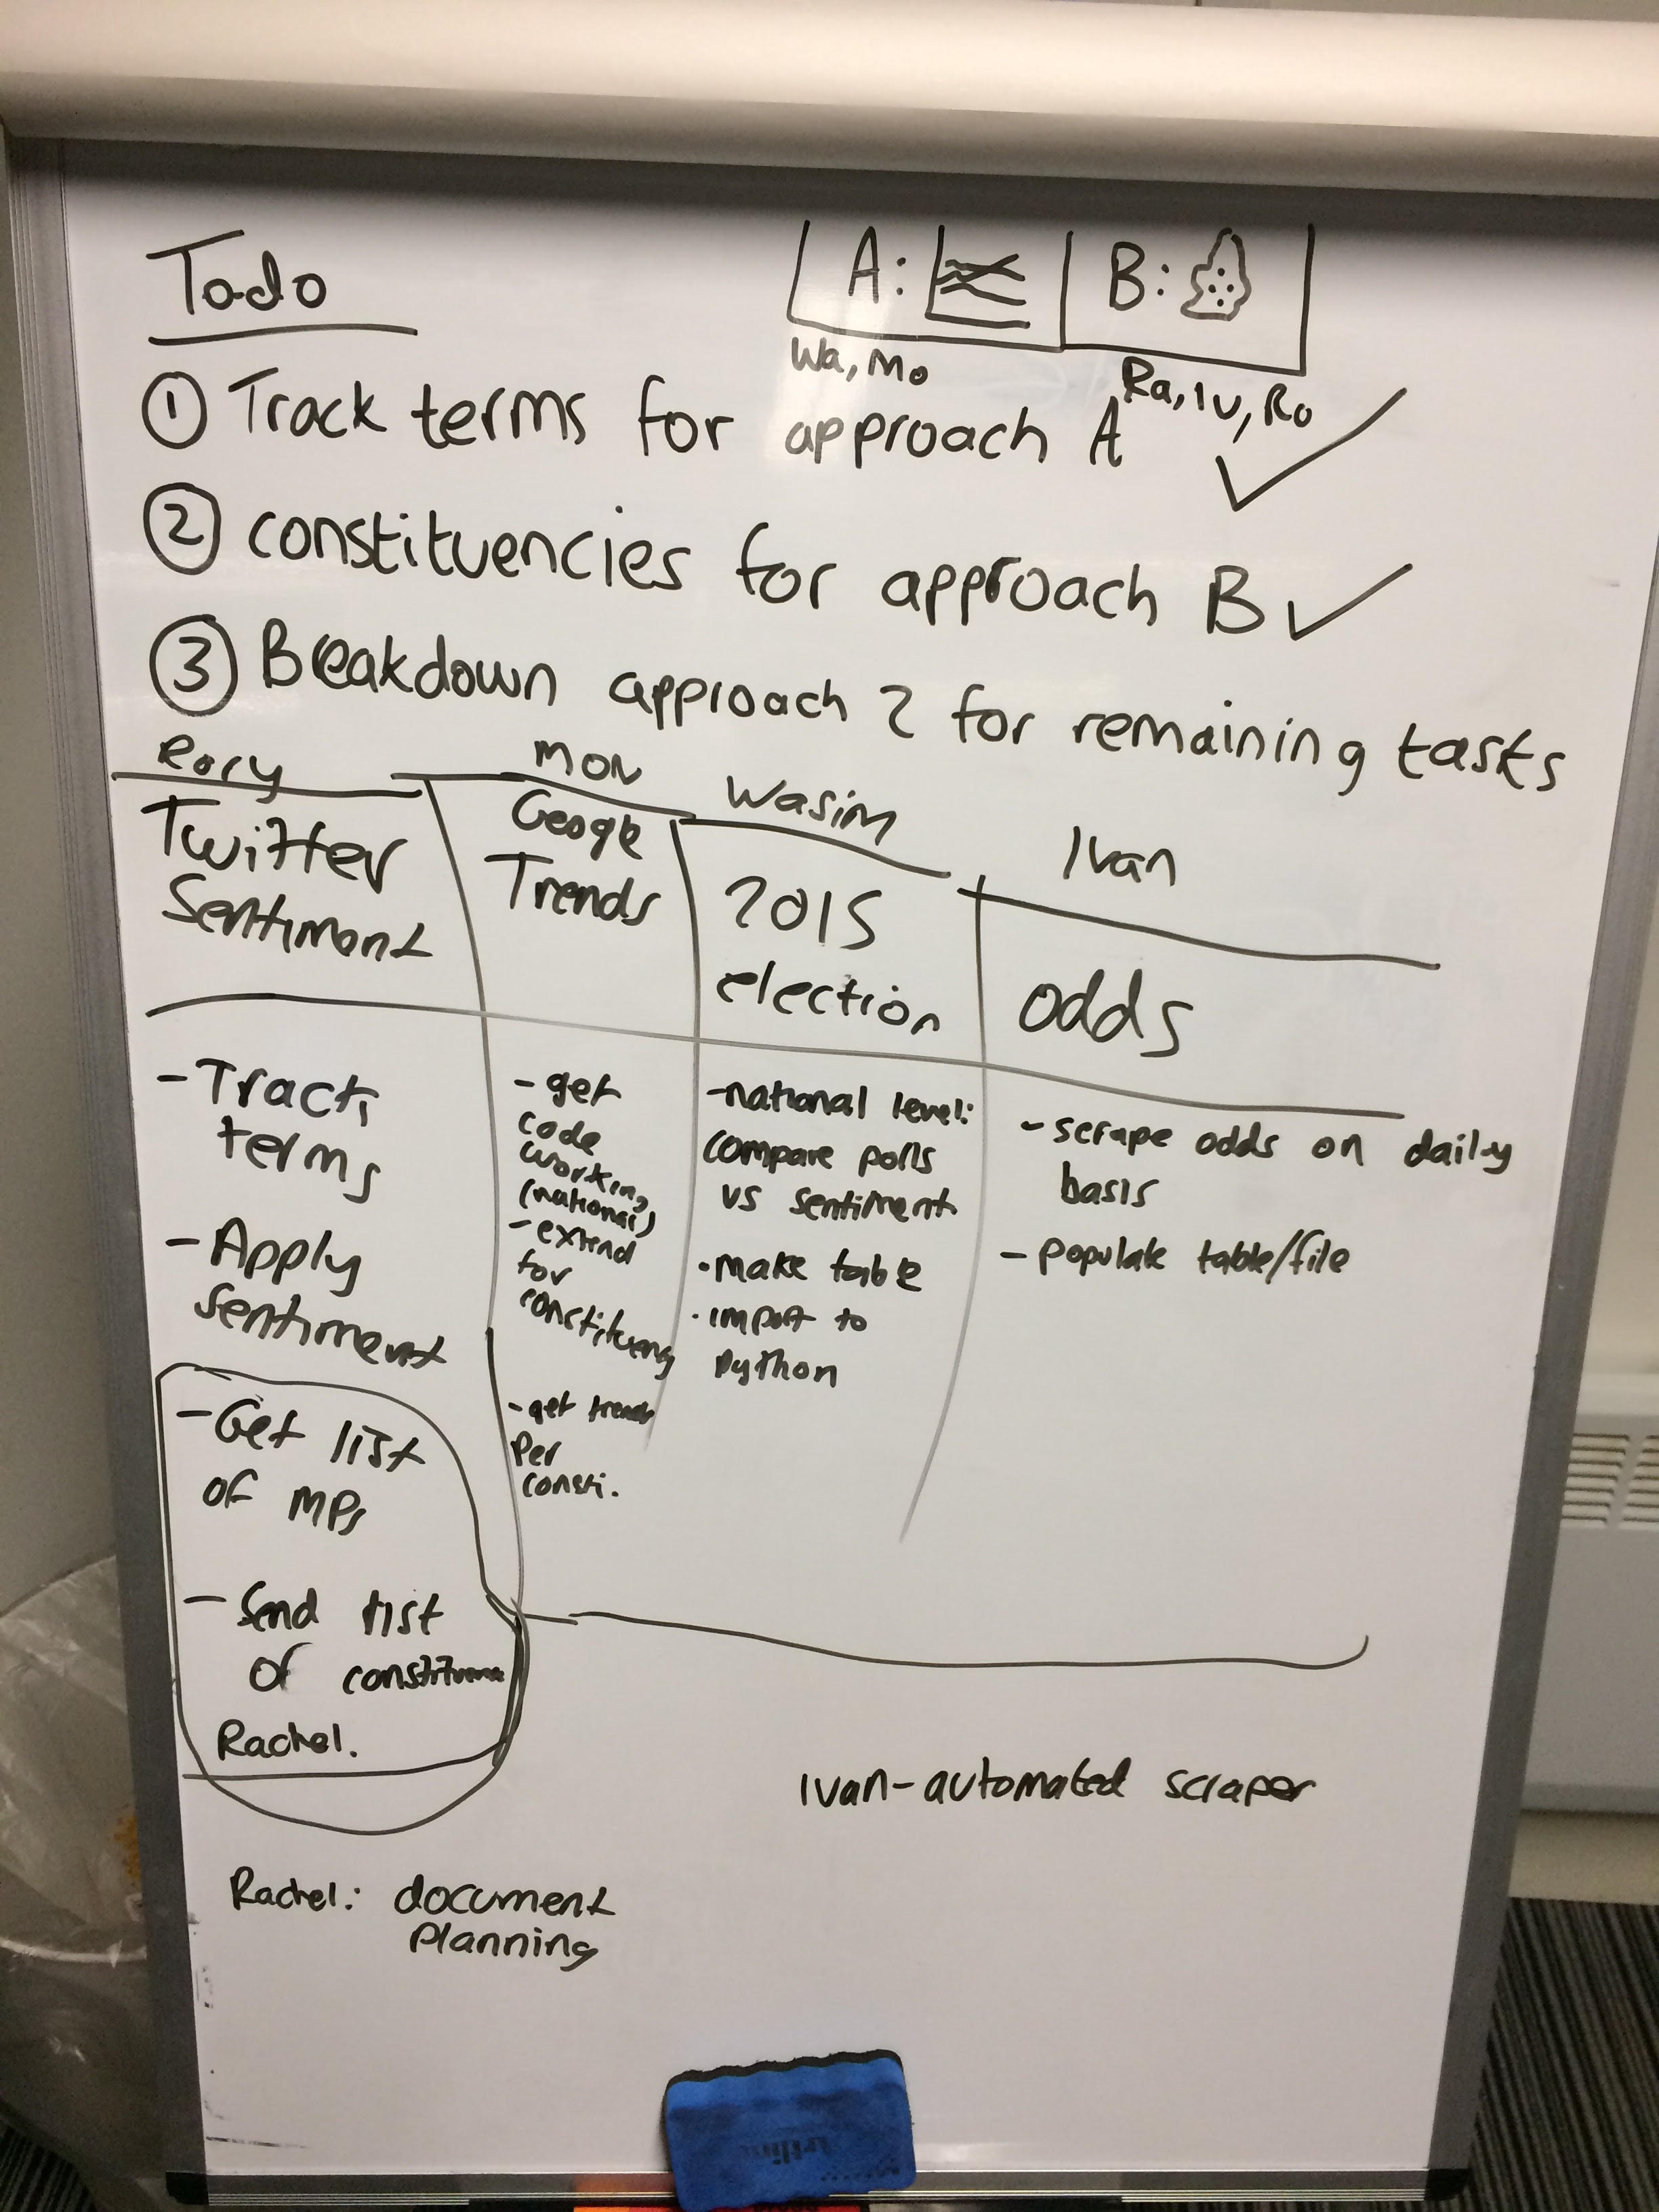 Todo
A: B:
Wa, Mo
Ra, Iv, Ro
① Track terms for approach A ✓
② constituencies for approach B ✓
③ Breakdown approach 2 for remaining tasks
Rory
Twitter
Sentiment
- Track
terms
- Apply
Sentiment
- Get list
of MPs
- Send list
of
Rachel.
Mon
Google
Trends
- get
code
working
(national)
- extend
for
constituency
- get trends
Per
consti.
Wasim
2015
election
- national level:
compare polls
vs sentiment
• make table
• import to
python
Ivan
odds
- scrape odds on daily
basis
- populate table/file
Ivan - automated scraper
Rachel: document
Planning